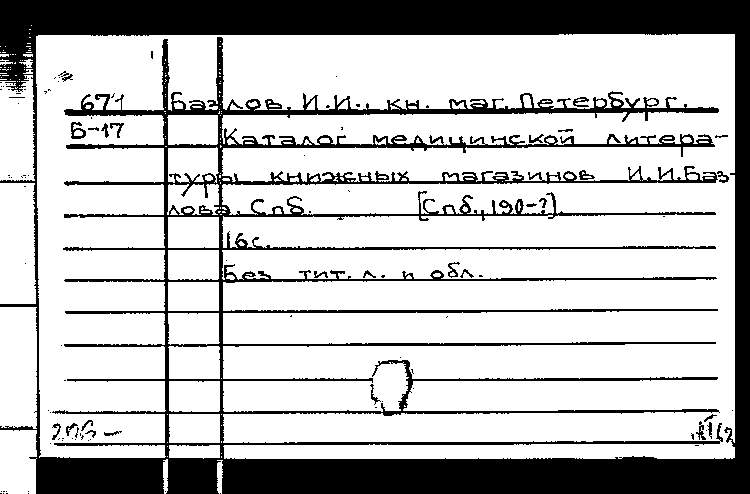 671 Базлов, И.И., кн. маг. Петербург.
Б-17 Каталог медицинской литера-
туры книжных магазинов И.И.Баз-
лова. Спб. [Спб., 190-?].
16с.
Без тит. л. и обл.